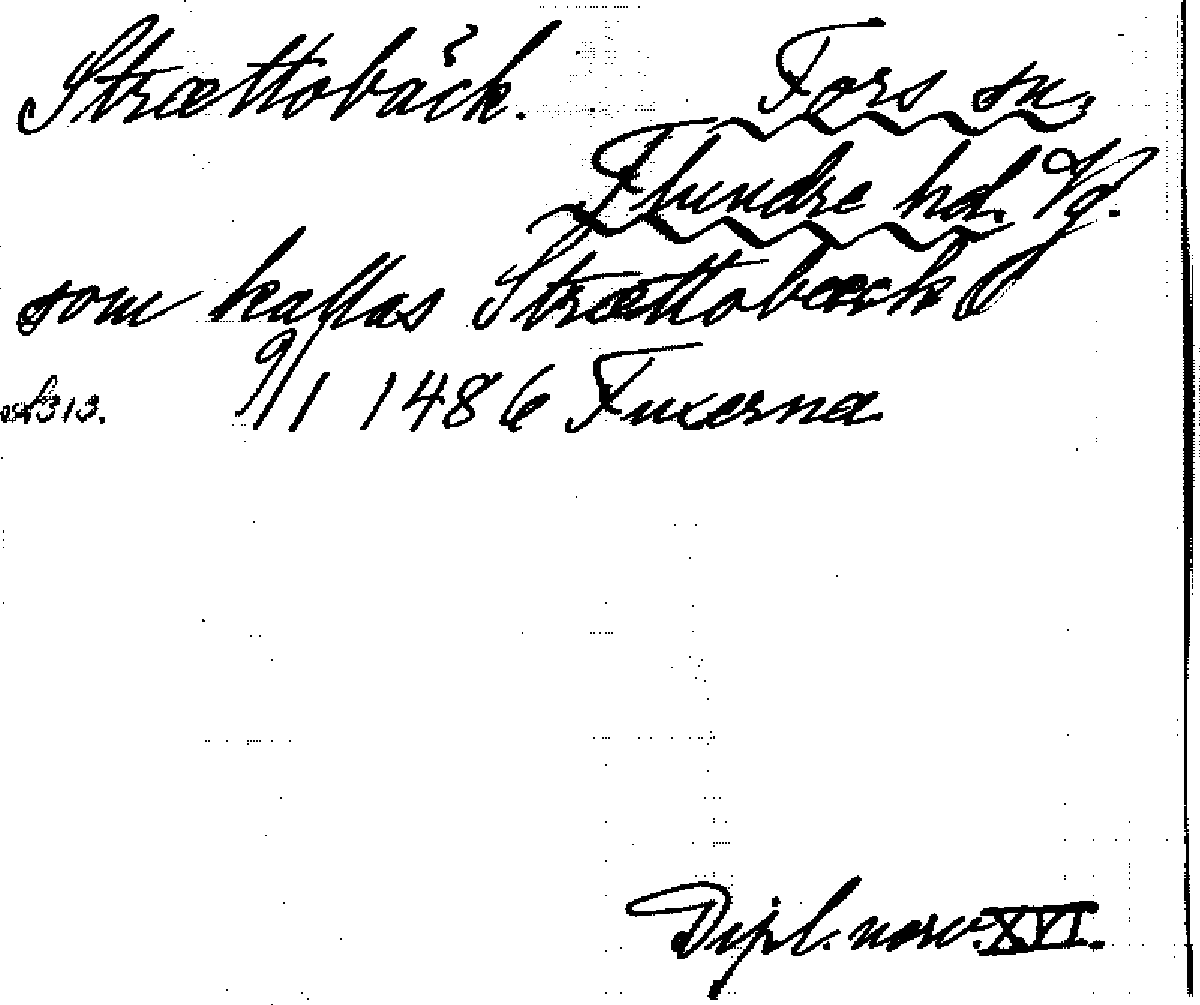 Strættobäck. Fors sn,
Flundre hd. Vg.
som kallas Strættobæck
9/1 1486 Fuxerna
s. 313.
Dipl. norv. XVI.